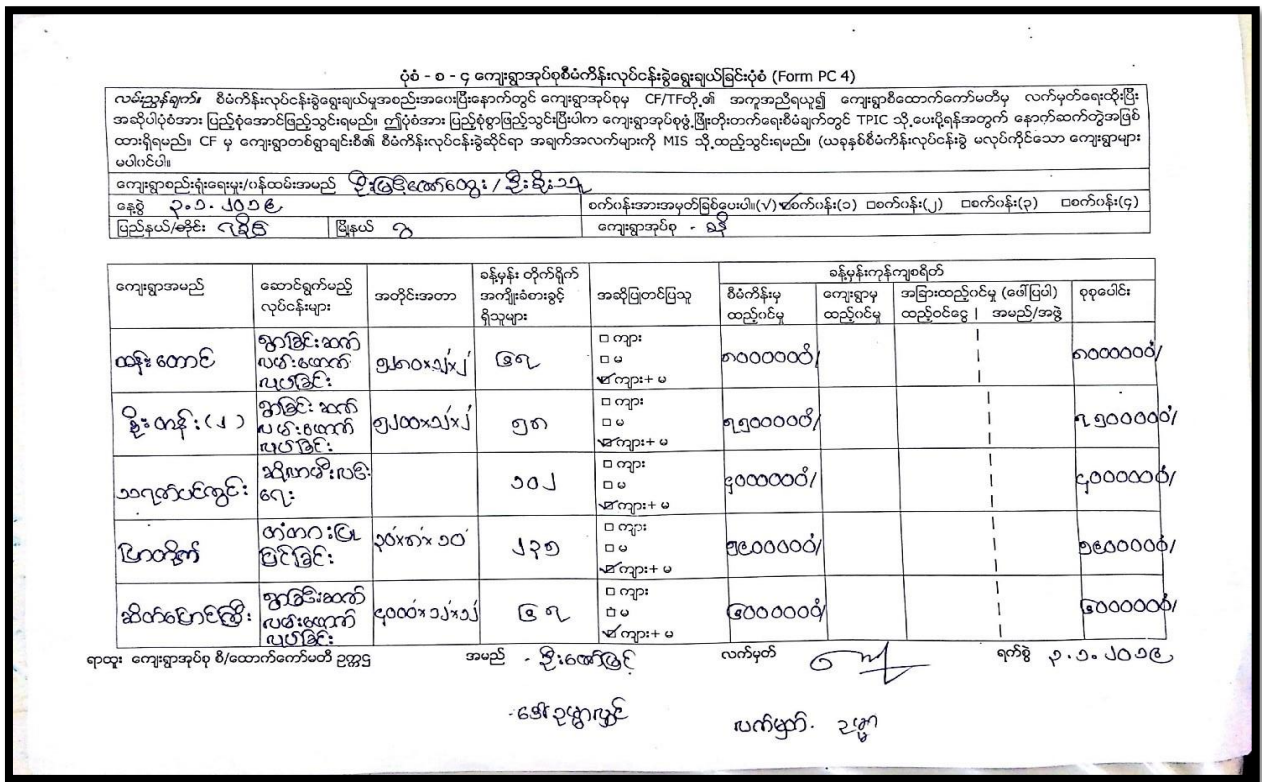 ပုံစံ - စ - ၄ ကျေးရွာအုပ်စုစီမံကိန်းလုပ်ငန်းခွဲရွေးချယ်ခြင်းပုံစံ (Form PC 4)
လမ်းညွှန်ချက်။ စီမံကိန်းလုပ်ငန်းခွဲရွေးချယ်မှုအစည်းအဝေးပြီးနောက်တွင် ကျေးရွာအုပ်စုမှ CF/TFတို့၏ အကူအညီရယူ၍ ကျေးရွာစီထောက်ကော်မတီမှ လက်မှတ်ရေးထိုးပြီး
အဆိုပါပုံစံအား ပြည့်စုံအောင်ဖြည့်သွင်းရမည်။ ဤပုံစံအား ပြည့်စုံစွာဖြည့်သွင်းပြီးပါက ကျေးရွာအုပ်စုဖွံ့ဖြိုးတိုးတက်ရေးစီမံချက်တွင် TPIC သို့ပေးပို့ရန်အတွက် နောက်ဆက်တွဲအဖြစ်
ထားရှိရမည်။ CF မှ ကျေးရွာတစ်ရွာချင်းစီ၏ စီမံကိန်းလုပ်ငန်းခွဲဆိုင်ရာ အချက်အလက်များကို MIS သို့ထည့်သွင်းရမည်။ (ယခုနှစ်စီမံကိန်းလုပ်ငန်းခွဲ မလုပ်ကိုင်သော ကျေးရွာများ
မပါဝင်ပါ။
ကျေးရွာစည်းရုံးရေးမှူး/ဝန်ထမ်းအမည်
နေ့စွဲ ၃.၁.၂၀၁၉ စက်ဝန်းအားအမှတ်ခြစ်ပေးပါ။(√) ☑စက်ဝန်း(၁) □စက်ဝန်း(၂) □စက်ဝန်း(၃) □စက်ဝန်း(၄)
ပြည်နယ်/တိုင်း ရခိုင် မြို့နယ် ကျေးရွာအုပ်စု -
ကျေးရွာအမည် ဆောင်ရွက်မည့် လုပ်ငန်းများ အတိုင်းအတာ ခန့်မှန်း တိုက်ရိုက် အကျိုးခံစားခွင့် ရှိသူများ အဆိုပြုတင်ပြသူ ခန့်မှန်းကုန်ကျစရိတ်
စီမံကိန်းမှ ထည့်ဝင်မှု ကျေးရွာမှ ထည့်ဝင်မှု အခြားထည့်ဝင်မှု (ဖော်ပြပါ) ထည့်ဝင်ငွေ | အမည်/အဖွဲ့ စုစုပေါင်း
ထန်းတောင် ရွာခြင်းဆက် လမ်းဖောက် လုပ်ခြင်း □ ကျား □ မ ☑ ကျား+ မ ၈၀၀၀၀၀၀ိ/ ၈၀၀၀၀၀၀ိ/
ရွာခြင်းဆက် လမ်းဖောက် လုပ်ခြင်း ၅၈ □ ကျား □ မ ☑ ကျား+ မ ၇၅၀၀၀၀၀ိ/ ၇၅၀၀၀၀၀ိ/
ဆိုလာမီးလင်း ရေး ၁၀၂ □ ကျား □ မ ☑ ကျား+ မ ၄၀၀၀၀၀၀ိ/ ၄၀၀၀၀၀၀ိ/
မြာတိုက် တံတားပြု ပြင်ခြင်း ၃၀'x၈'x ၁၀' ၂၃၅ □ ကျား □ မ ☑ ကျား+ မ ၅၉၀၀၀၀၀ိ/ ၅၉၀၀၀၀၀ိ/
ရွာခြင်းဆက် လမ်းဖောက် လုပ်ခြင်း ၄၀၀၀'x ၁၂'x၁၂ ၆၇ □ ကျား □ မ ☑ ကျား+ မ ၆၀၀၀၀၀၀ိ/ ၆၀၀၀၀၀၀ိ/
ရာထူး ကျေးရွာအုပ်စု စီ/ထောက်ကော်မတီ ဥက္ကဋ္ဌ အမည် - ဦးဇော်မြင့် လက်မှတ် ရက်စွဲ ၃.၁.၂၀၁၉
- ဒေါ်ဥမ္မာလွင် လက်မှတ်. ဥမ္မာ